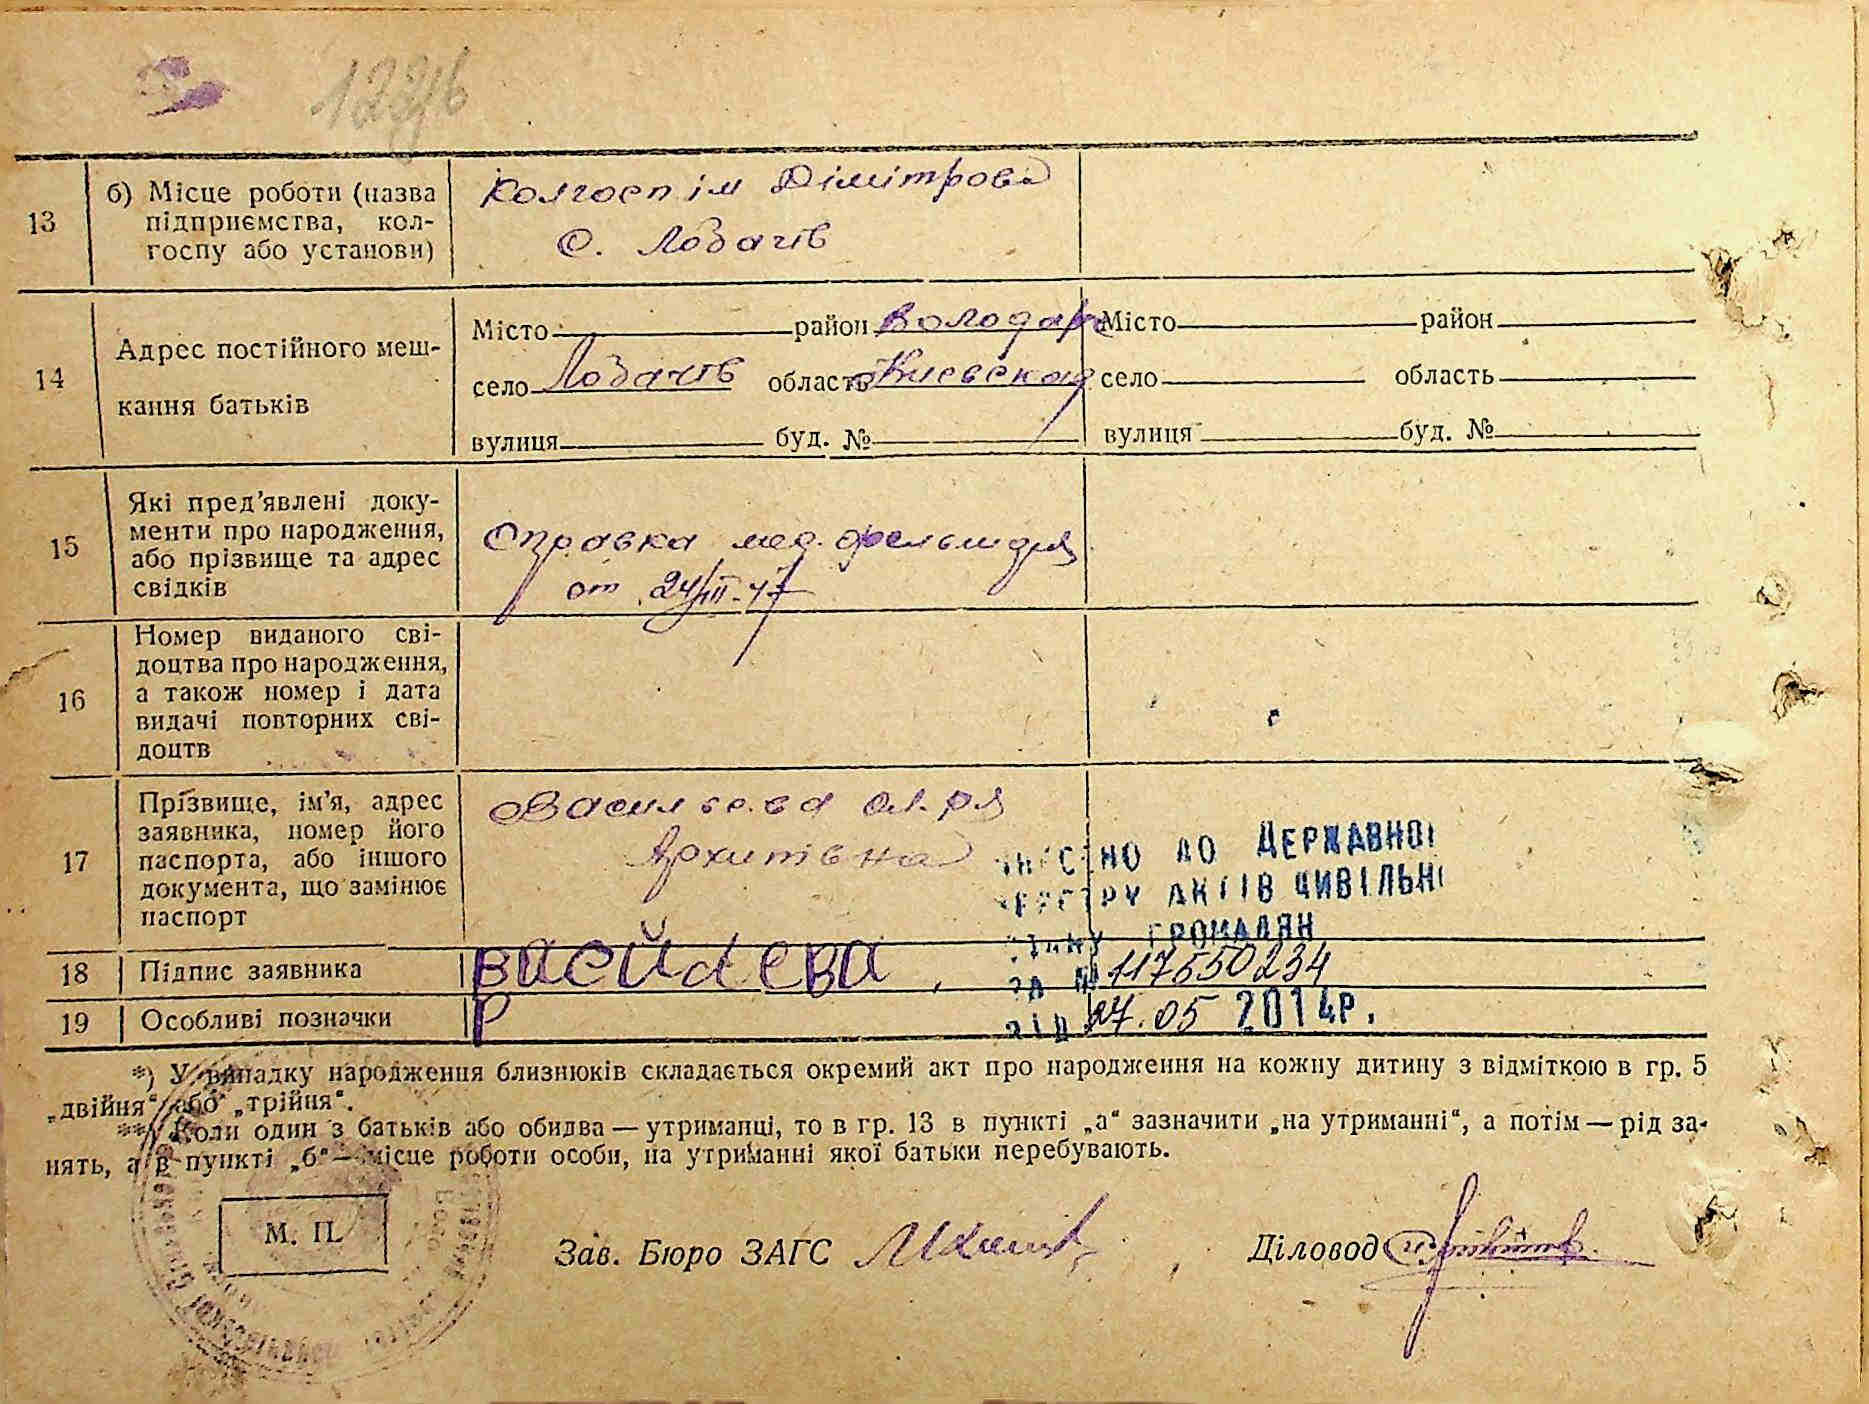 13
б) Місце роботи (назва
підприємства, кол-
госпу або установи)
Колгосп ім Дімітрова
С. Лобачів
14
Адрес постійного меш-
кання батьків
Місто район Володар Місто район
село Лобачів область Киевская село область
вулиця буд. № вулиця буд. №
15
Які пред'явлені доку-
менти про народження,
або прізвище та адрес
свідків
Справка мед. фельшдля
от 24/III-47
16
Номер виданого сві-
доцтва про народження,
а також номер і дата
видачі повторних сві-
доцтв
17
Прізвище, ім'я, адрес
заявника, номер його
паспорта, або іншого
документа, що замінює
паспорт
Васильева
Архипівна
ДО ДЕРЖАВНОЇ
АКТІВ ЦИВІЛЬНІ
ГРОМАДЯН
18 Підпис заявника ВАСЙЛЕВА
117550234
19 Особливі позначки
27.05 2014р.
*) У випадку народження близнюків складається окремий акт про народження на кожну дитину з відміткою в гр. 5
„двійня“ або „трійня“.
**) Коли один з батьків або обидва — утриманці, то в гр. 13 в пункті „а“ зазначити „на утриманні“, а потім — рід за-
нять, а в пункті „б“ — місце роботи особи, на утриманні якої батьки перебувають.
М. П.
Зав. Бюро ЗАГС
Діловод